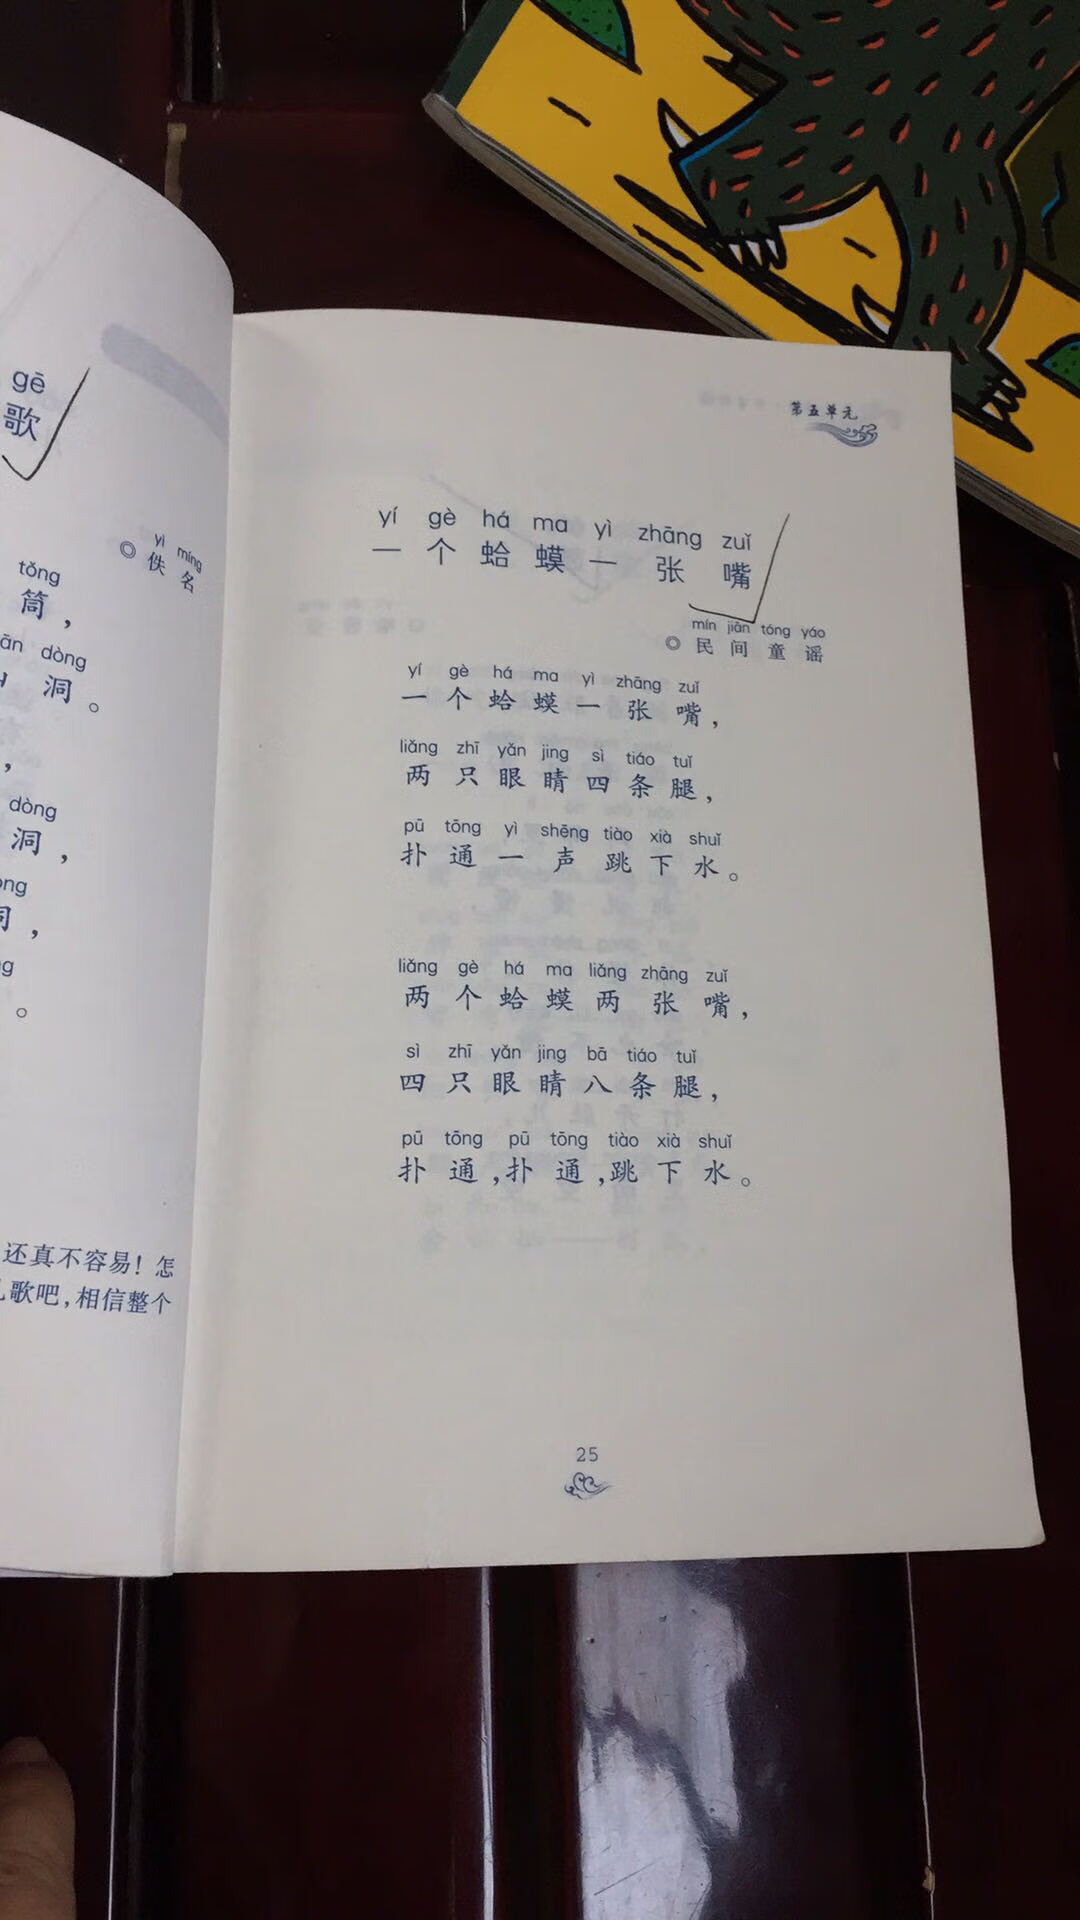 gē
歌
yì míng
◎ 佚名
tǒng
筒，
dòng
洞。
，
dòng
洞，
，
。
还真不容易！怎
歌吧，相信整个
第五单元
yí gè há ma yì zhāng zuǐ
一个蛤蟆一张嘴
mín jiān tóng yáo
◎ 民间童谣
yí gè há ma yì zhāng zuǐ
一个蛤蟆一张嘴，
liǎng zhī yǎn jing sì tiáo tuǐ
两只眼睛四条腿，
pū tōng yì shēng tiào xià shuǐ
扑通一声跳下水。
liǎng gè há ma liǎng zhāng zuǐ
两个蛤蟆两张嘴，
sì zhī yǎn jing bā tiáo tuǐ
四只眼睛八条腿，
pū tōng pū tōng tiào xià shuǐ
扑通，扑通，跳下水。
25